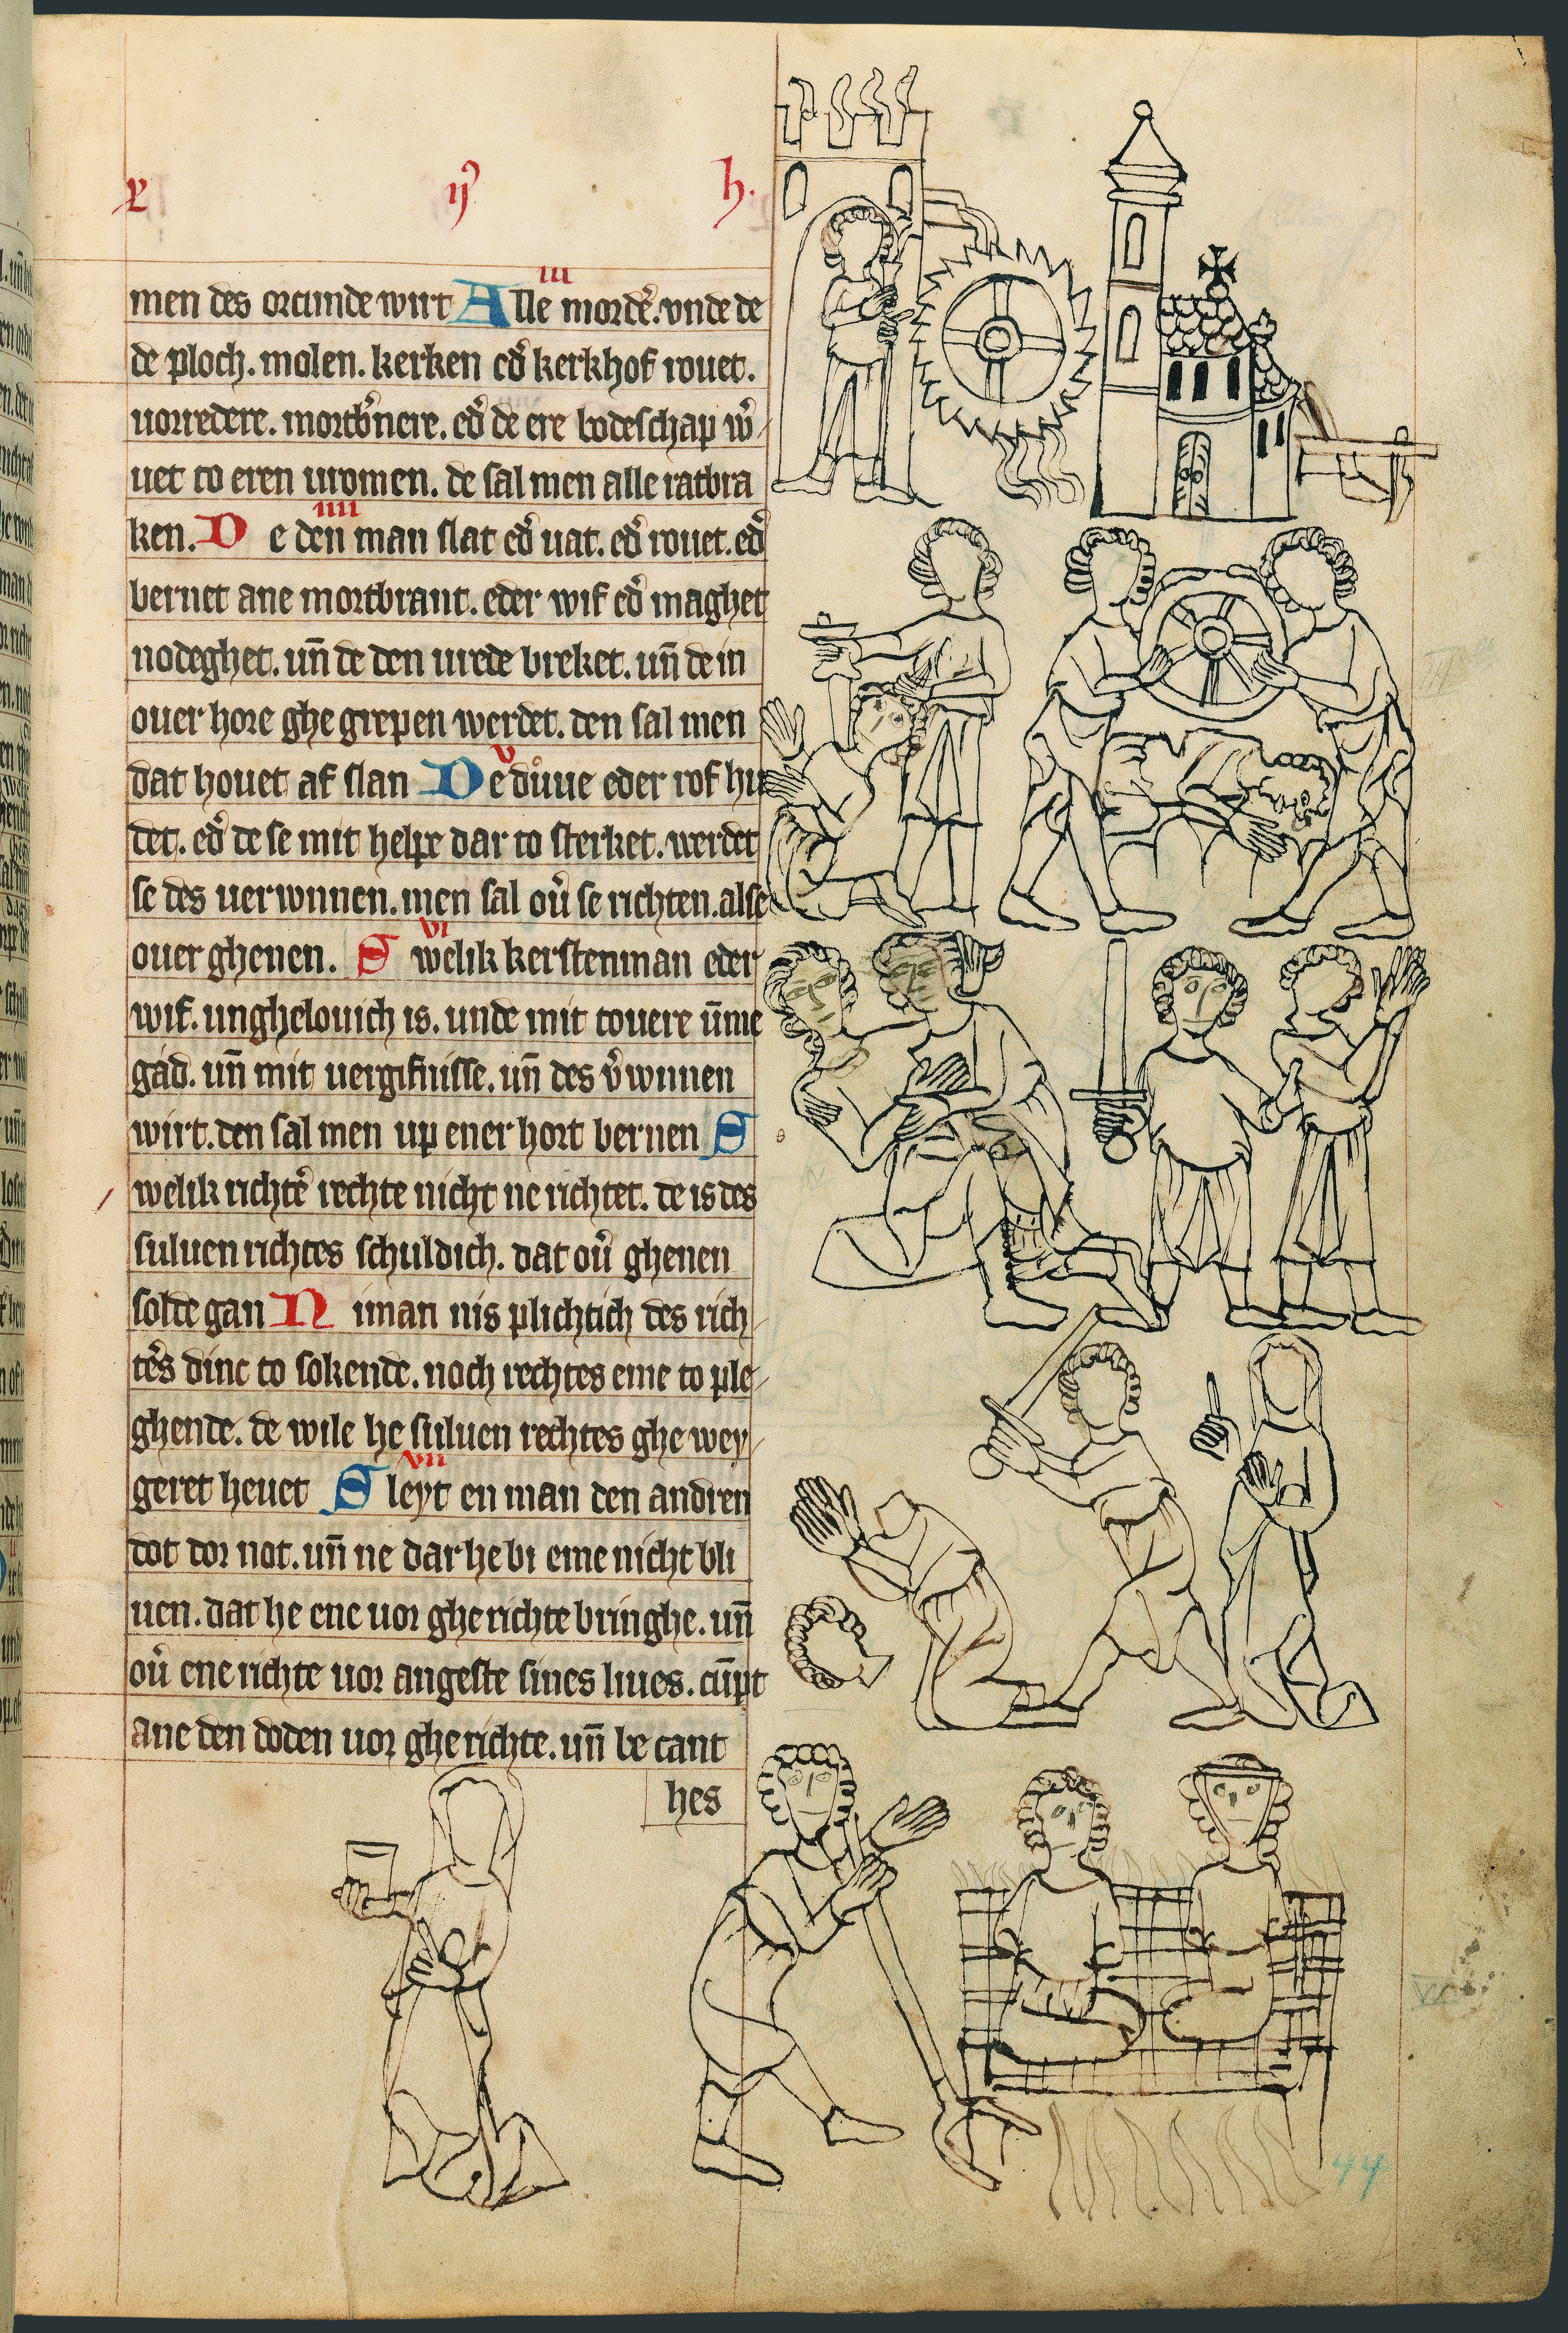 x ij h.
men des orcunde wirt Alle mordẽ. vnde de
iii
de ploch. molen. kerken ed̓ kerkhof rouet.
uorredere. mortb̓nere. ed̓ de ere bodeschap w̓
uet to eren uromen. de sal men alle ratbra
ken. De den man slat ed̓ uat. ed̓ rouet. ed̓
iiii
bernet ane mortbrant. eder wif ed̓ maghet
nodeghet. uñ de den urede breket. uñ de in
ouer hore ghegrepen werdet. den sal men
dat houet af slan De duͦue eder rof hu
v
det. ed̓ de se mit helpe dar to sterket. werdet
se des uerwunnen. men sal ou̓ se richten. alse
ouer ghenen. Swelik kerstenman eder
vi
wif. unghelouich is. unde mit touere ũme
gad. uñ mit uergifnisse. uñ des v̓wunnen
wirt. den sal men up ener hort bernen S
welik richtẽ rechte nicht ne richtet. de is des
suluen richtes schuldich. dat ou̓ ghenen
solde gan Niman nis plichtich des rich
tẽs dinc to sokende. noch rechtes eme to ple
ghende. de wile he suluen rechtes ghe wey
geret heuet Sleyt en man den andren
vii
dot dor not. uñ ne dar he bi eme nicht bli
uen. dat he ene uor gherichte bringhe. uñ
ou̓ ene richte uor angeste sines liues. cũpt
ane den doden uor gherichte. uñ be cant
hes
44